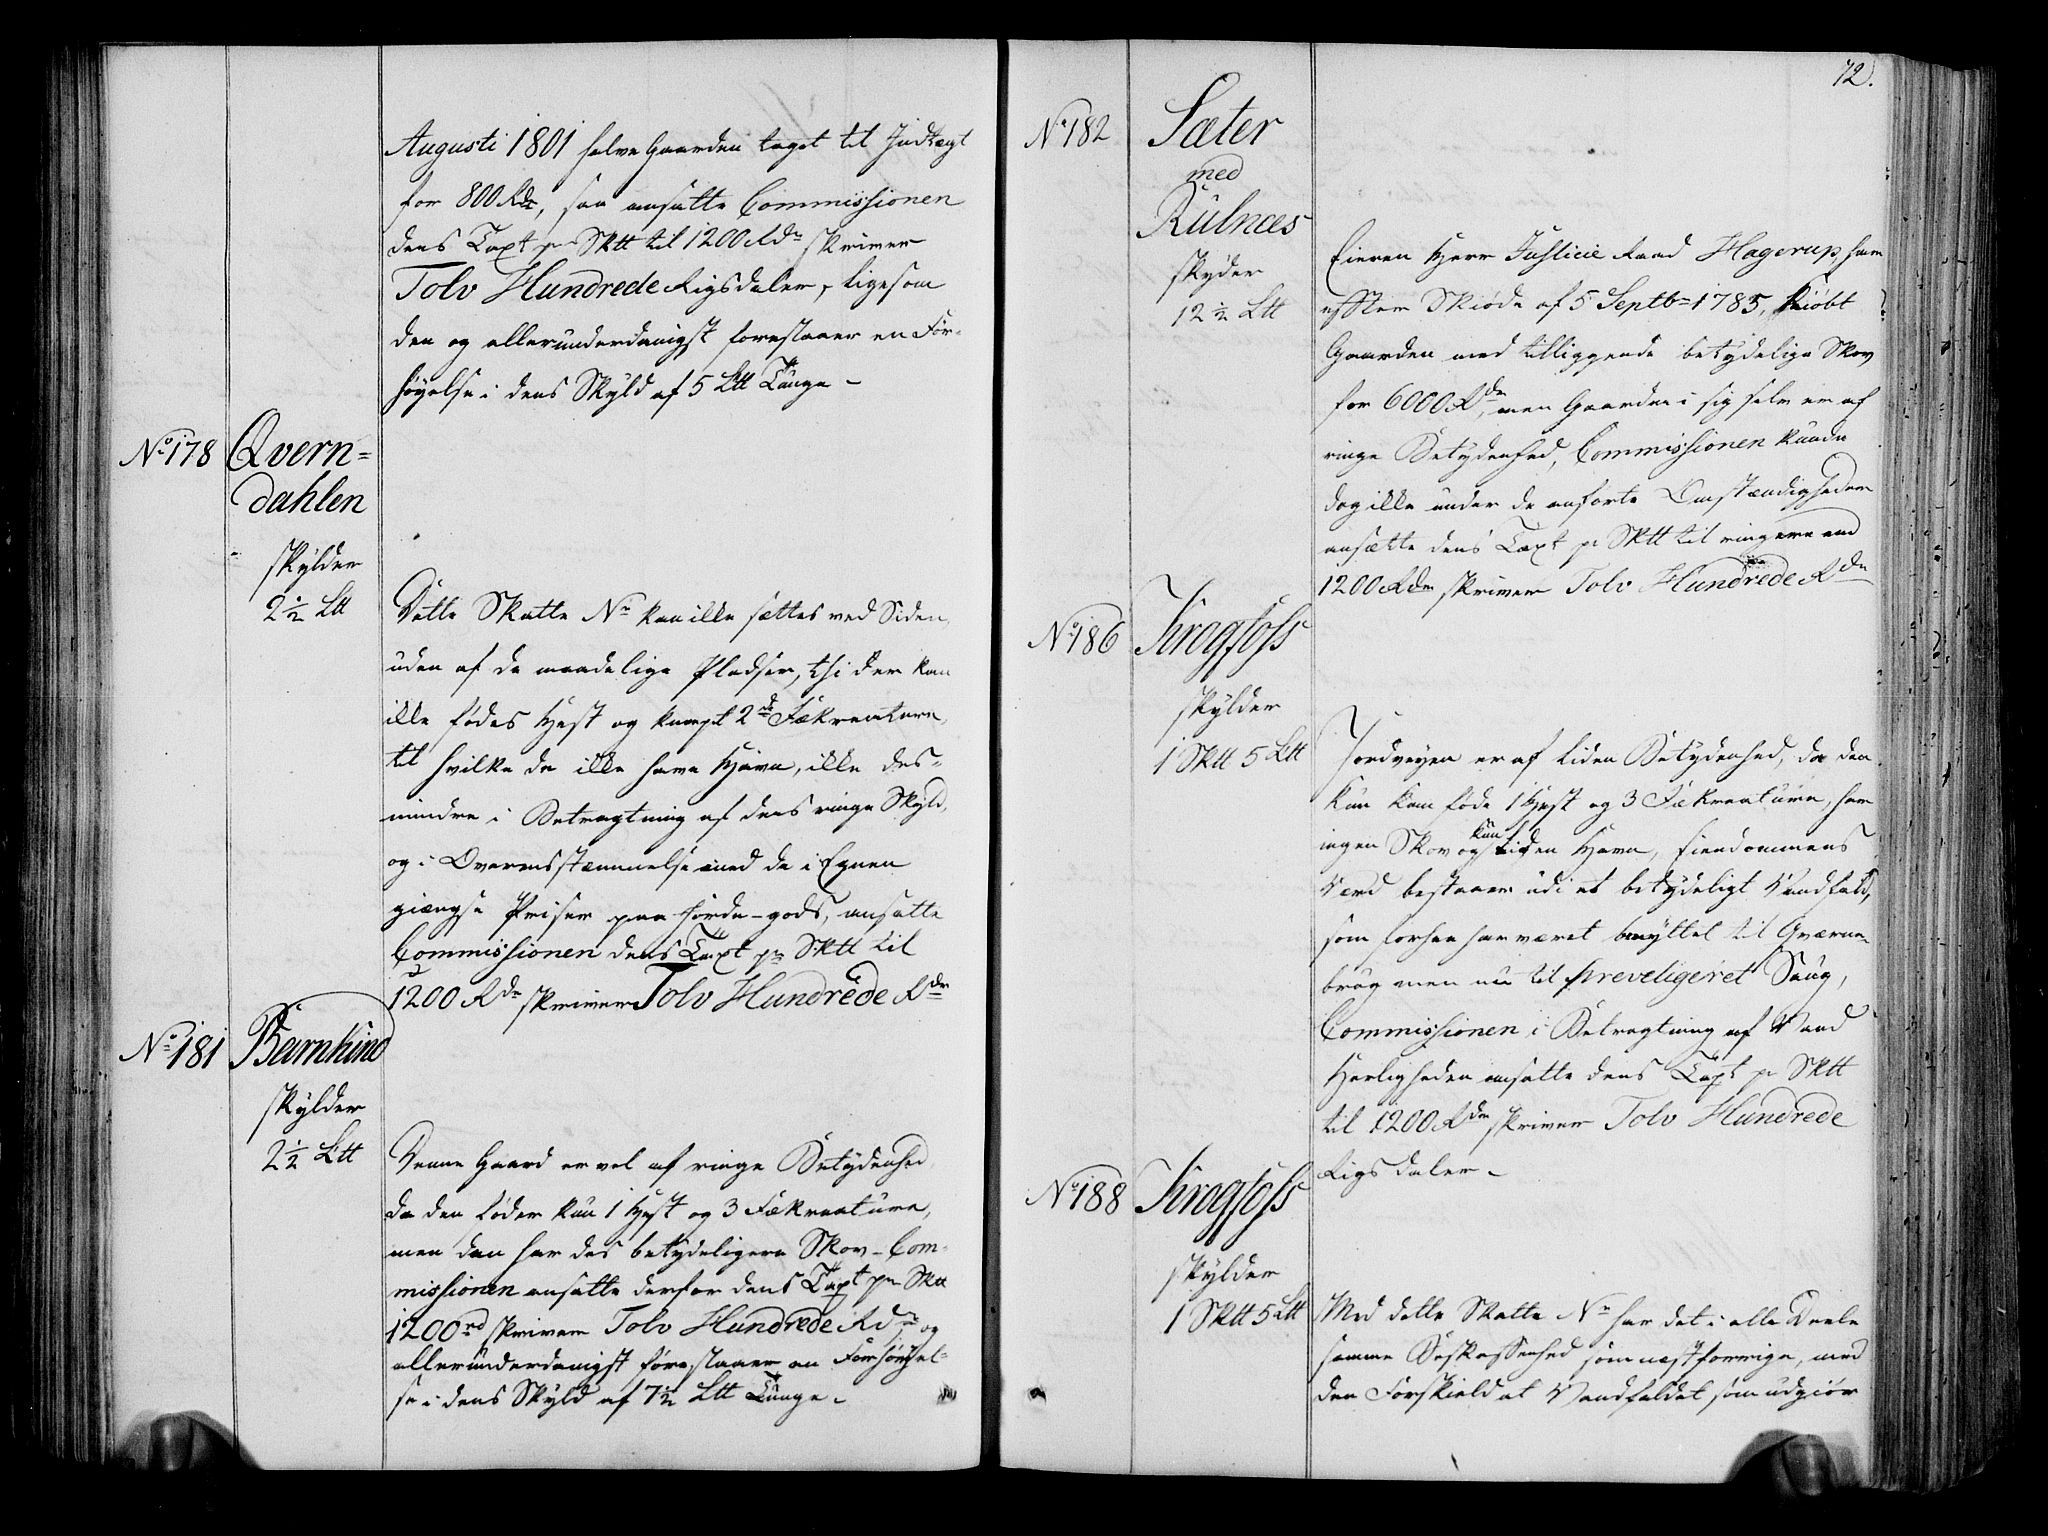 Augusti 1801 halve Gaarden taget til Indtægt
for 800 Rdr, saa ansatte Commissionen
dens Taxt pr Sktt til 1200 Rdr skriver
Tolv Hundrede Rigsdaler, ligesom
den og allerunderdanigst forestaaer en For-
høyelse i dens Skyld af 5 Ltt Tunge -
No 178 Qvern=
dahlen
skylder
2 1/2 Ltt
Dette Skatte No kan ikke sættes ved Siden
uden af de maadelige Pladser, thi der kan
ikke fødes Hest og knapt 2de Fækreature,
til hvilke de ikke have Havn, ikke des-
mindre i Betragtning af dens ringe Skyld,
og i Overensstemmelse med de i Egnen
giængse Priser paa Jorde-gods, ansatte
Commissionen dens Taxt pr Sktt til
1200 Rdr skriver Tolv Hundrede Rdr
No 181 Bærnhimd
skylder
2 1/2 Ltt
Denne Gaard er vel af ringe Betydenhed,
da den føder kun 1 Hest og 3 Fækreature,
men den har des betydeligere Skov - Com-
missionen ansatte derfor dens Taxt pr Sktt
1200rd skriver Tolv Hundrede Rdr, og
allerunderdanigst forestaaer en Forhøyel-
se i dens Skyld af 7 1/2 Ltt Tunge -
72.
No 182 Sæter
med
Rulnæs
skylder
12 1/2 Ltt
Eieren Herr Justice Raad Hagerup, har
efter Skiøde af 5 Septbr 1785, kiøbt
Gaarden med tilliggende betydelige Skov
for 6000 Rdr, men Gaarden i sig selv er af
ringe Betydenhed, Commissionen kunde
dog ikke under de anforte Omstændigheder
ansætte dens Taxt pr Sktt til ringere end
1200 Rdr skriver Tolv Hundrede Rdr
No 186 Krogfoss
skylder
1 Sktt 5 Ltt
Jordveyen er af liden Betydenhed, da den
kun kan føde 1 Hest og 3 Fækreature, har
ingen Skov og kun liden Havn, Eiendommens
Værd bestaaer udi et betydeligt Vandfald,
som forhen har været benyttet til Qværne-
brug men nu til preveligeret Saug,
Commissionen i Betragtning af Vand
Herligheden ansatte dens Taxt pr Sktt
til 1200 Rdr skriver Tolv Hundrede
Rigsdaler -
No 188 Krogfoss
skylder
1 Sktt 5 Ltt
Med dette Skatte No har det i alle Deele
samme Beskaffenhed som næstforrige, med
den Forskield at Vandfaldet som udgiør